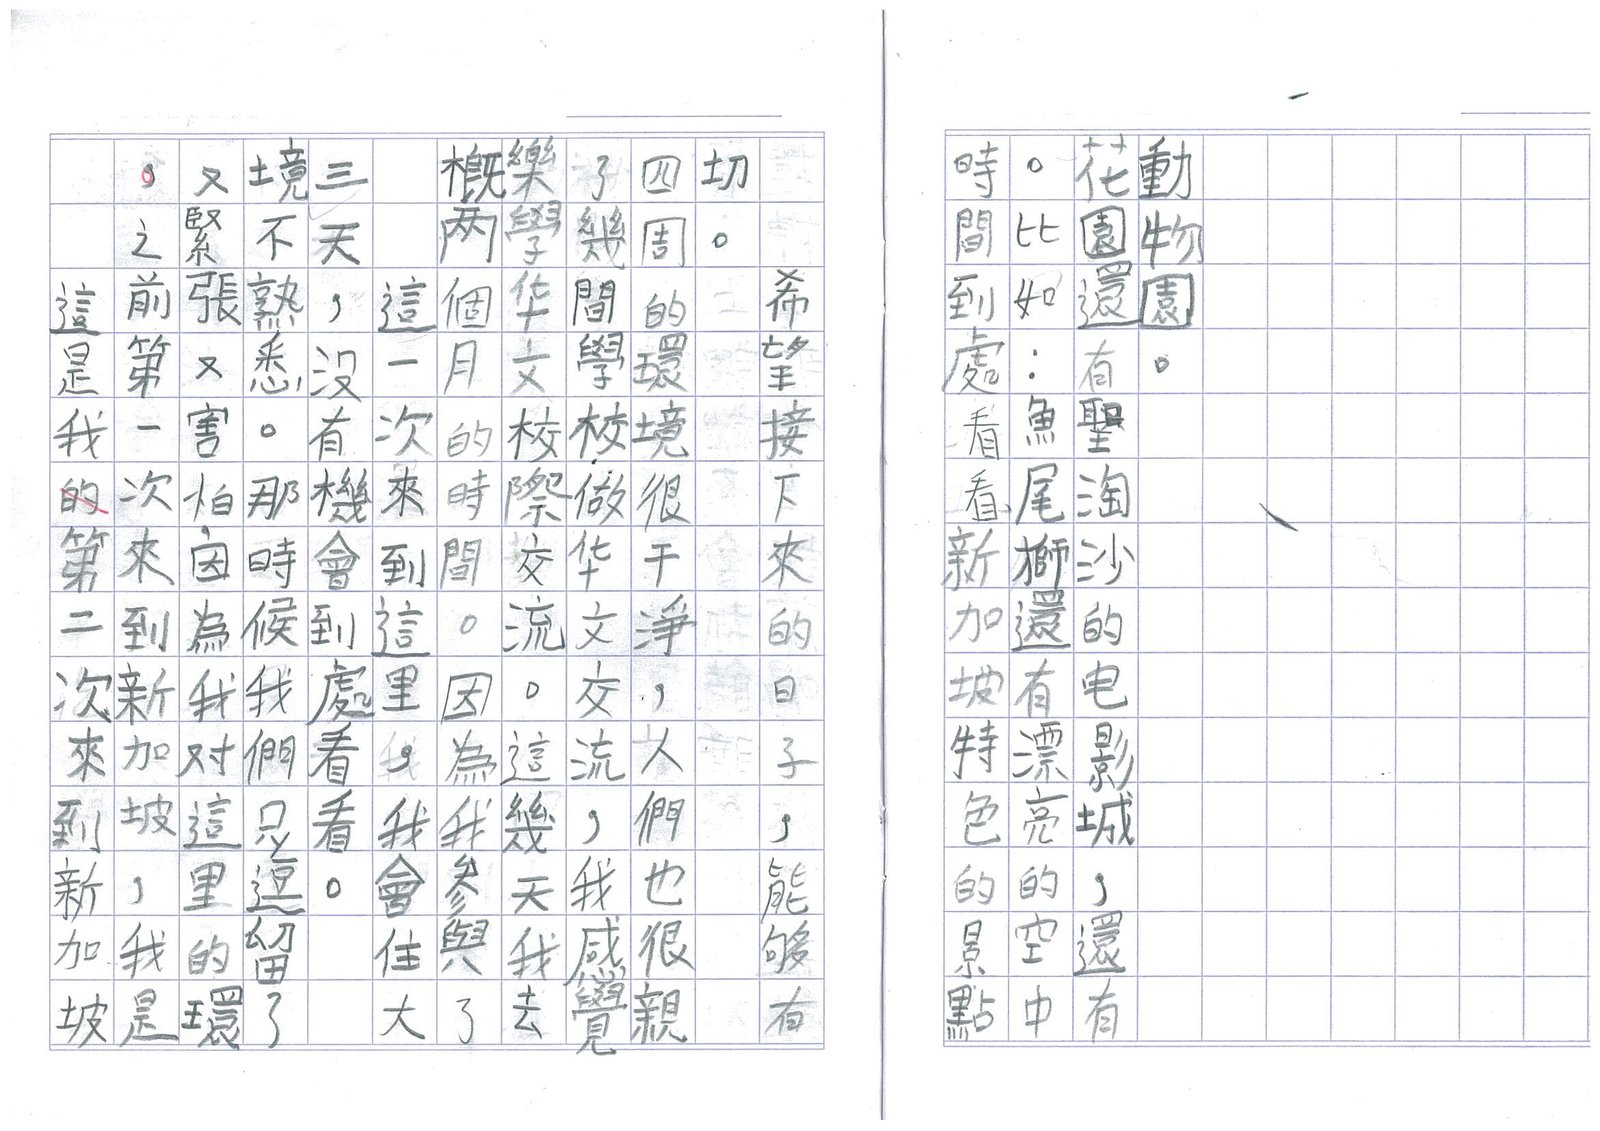 這是我的第二次來到新加坡
，之前第一次來到新加坡，我是
又緊張又害怕，因為我对這里的環
境不熟悉。那時候我們只逗留了
三天，没有機會到處看看。
這一次來到這里，我會住大
概两個月的時間。因為我參與了
樂學华文校際交流。這幾天我去
了幾間學校做华文交流，我感覺
四周的環境很干淨，人們也很親
切。
希望接下來的日子，能够有
時間到處看看新加坡特色的景點
。比如：魚尾獅還有漂亮的空中
花園還有聖淘沙的电影城，還有
動物園。